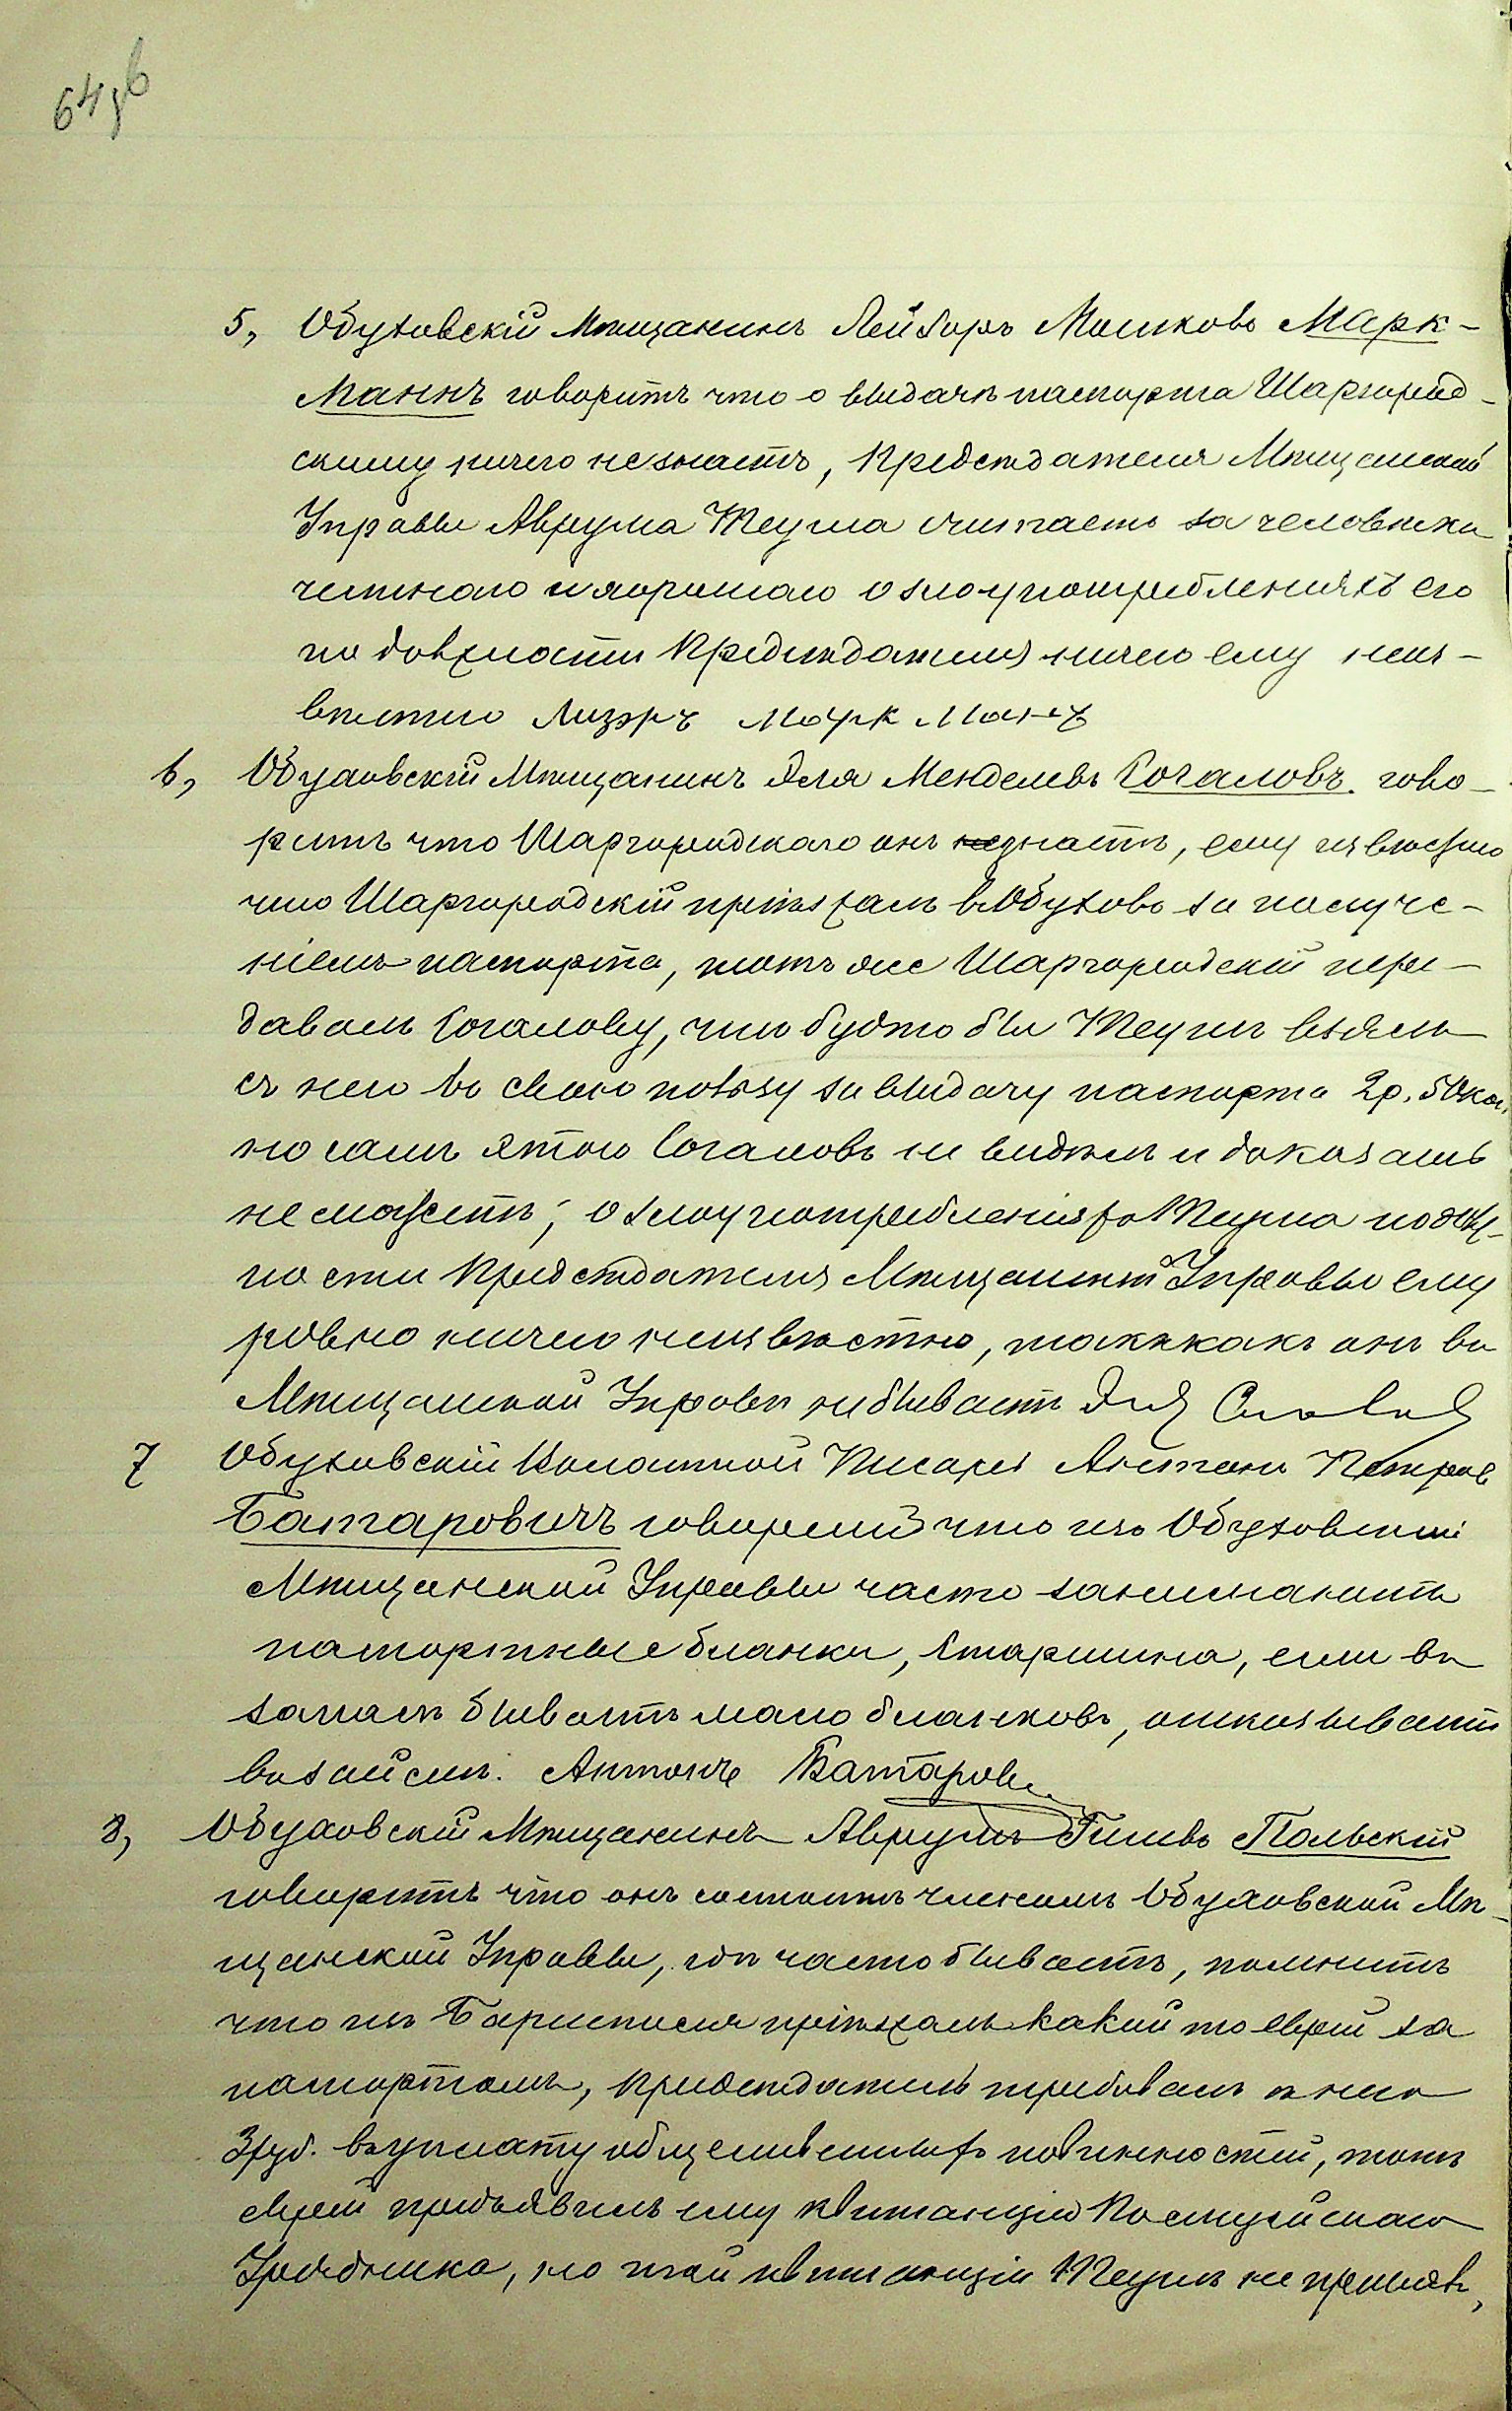 64 об
5, Обуховскій Мѣщанинъ Лейзоръ Мошковъ Марк-
Маннъ говоритъ что о выдачѣ паспорта Шаргород-
скому ничего не знаетъ, Предсѣдателя Мѣщанской
Управы Аврума Теума считаетъ за человѣка
честнаго и хорошаго о злоупотребленіяхъ его
по должности Предсѣдателя ничего ему неиз-
вѣстно Лизэръ Марк Манъ
6, Обуховскій Мѣщанинъ Эля Менделевъ Согаловъ гово-
ритъ что Шаргородскаго онъ знаетъ, ему извѣстно
что Шаргородскій пріѣзжалъ въ Обуховъ за получе-
ніемъ паспорта, тотъ же Шаргородскій пере-
давалъ Согалову, что будто бы Теумъ взялъ
съ него въ свою пользу за выдачу паспорта 2р. 50 коп.
но самъ этого Согаловъ не видѣлъ и доказать
не можетъ; о злоупотребленіяхъ Теума по долж-
ности Предсѣдателя Мѣщанской Управы ему
ровно ничего неизвѣстно, такъ какъ онъ въ
Мѣщанской Управѣ не бываетъ Эля
7 Обуховскій Волостной Писарь Антонъ Петровъ
Батаровичъ говоритъ что изъ Обуховской
Мѣщанской Управы часто занимаютъ
паспортные бланки, Старшина, если въ
запасѣ бываетъ мало бланковъ, отказываетъ
въ займѣ. Антонъ Батарови
8, Обуховскій Мѣщанинъ Аврумъ Польскій
говоритъ что онъ состоитъ членомъ Обуховской Мѣ-
щанской Управы, гдѣ часто бываетъ, помнитъ
что изъ Барисполя пріѣзжалъ какой то еврей за
паспортомъ, Предсѣдатель требовалъ съ него
3 руб. въ уплату общественныхъ повинностей, тотъ
еврей предъявилъ ему квитанцію Полицейскаго
Урядника, но той квитанціи Теумъ не принялъ,